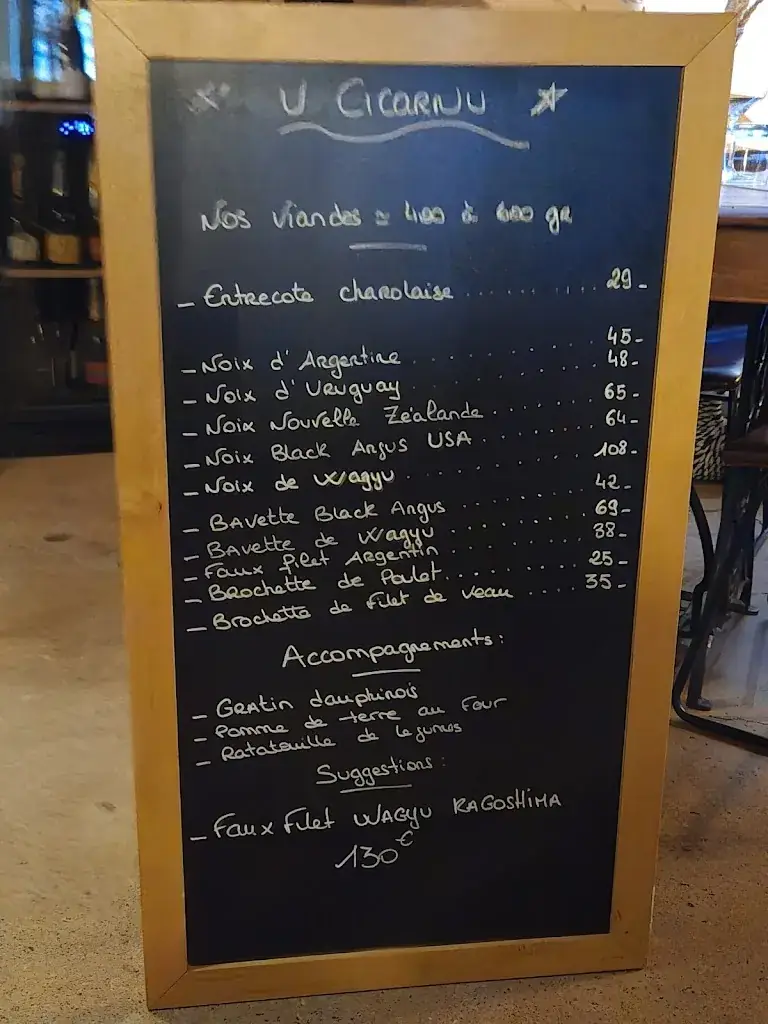 U CICARNU
Nos viandes ≃ 400 à 600 gr
- Entrecote charolaise .......... 29-
- Noix d'Argentine .......... 45-
- Noix d'Uruguay .......... 48-
- Noix Nouvelle Zélande .......... 65-
- Noix Black Angus USA .......... 64-
- Noix de Wagyu .......... 108-
- Bavette Black Angus .......... 42-
- Bavette de Wagyu .......... 69-
- Faux filet Argentin .......... 38-
- Brochette de Poulet .......... 25-
- Brochette de filet de veau .... 35-
Accompagnements:
- Gratin dauphinois
- Pomme de terre au Four
- Ratatouille de legumes
Suggestions:
- Faux Filet WAGYU KAGOSHIMA
130€